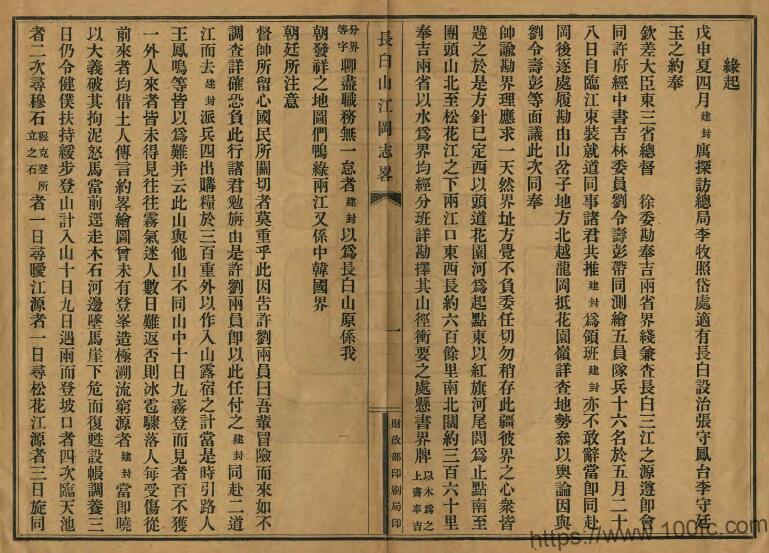 緣起
戊申夏四月建封廁探訪總局李牧照岱處適有長白設治張守鳳台李守廷
玉之約奉
欽差大臣東三省總督　徐委勘奉吉兩省界綫兼查長白三江之源遵卽會
同許府經中書吉林委員劉令壽彭帶同測繪五員隊兵十六名於五月二十
八日自臨江東裝就道同事諸君共推建封爲領班建封亦不敢辭當卽同赴
岡後逐處履勘由山岔子地方北越龍岡抵花園嶺詳查地勢參以輿論因與
劉令壽彭等面議此次同奉
帥諭勘界理應求一天然界址方覺不負委任切勿稍存此疆彼界之心衆皆
韙之於是方針已定西以頭道花園河爲起點東以紅旗河尾閭爲止點南至
團頭山北至松花江之下兩江口東西長約六百餘里南北闊約三百六十里
奉吉兩省以水爲界均經分班詳勘擇其山徑衝要之處懸書界牌以木爲之上書奉吉
長白山江岡志畧
一
財政部印刷局印
分界等字聊盡職務無一怠者建封以爲長白山原係我
朝發祥之地圖們鴨綠兩江又係中韓國界
朝廷所注意
督帥所留心國民所關切者莫重乎此因告許劉兩員曰吾輩冒險而來如不
調查詳確恐負此行諸君勉旃由是許劉兩員卽以此任付之建封同赴二道
江而去建封派兵四出購糧於三百里外以作入山露宿之計當是時引路人
王鳳鳴等皆以爲難并云此山與他山不同山中十日九霧登而見者百不獲
一外人來者皆未得見往往霧氣迷人數日難返否則冰雹驟落人每受傷從
前來者均借土人傳言約畧繪圖曾未有登峯造極溯流窮源者建封當卽曉
以大義破其拘泥怒馬當前逕走木石河邊墜馬崖下危而復甦設帳調養三
日仍令健僕扶持緩步登山計入山十日九遇雨而登坡口者四次臨天池
者二次尋穆石穆克登所立之石者一日尋曖江源者一日尋松花江源者三日旋同
https://www.100fc.com